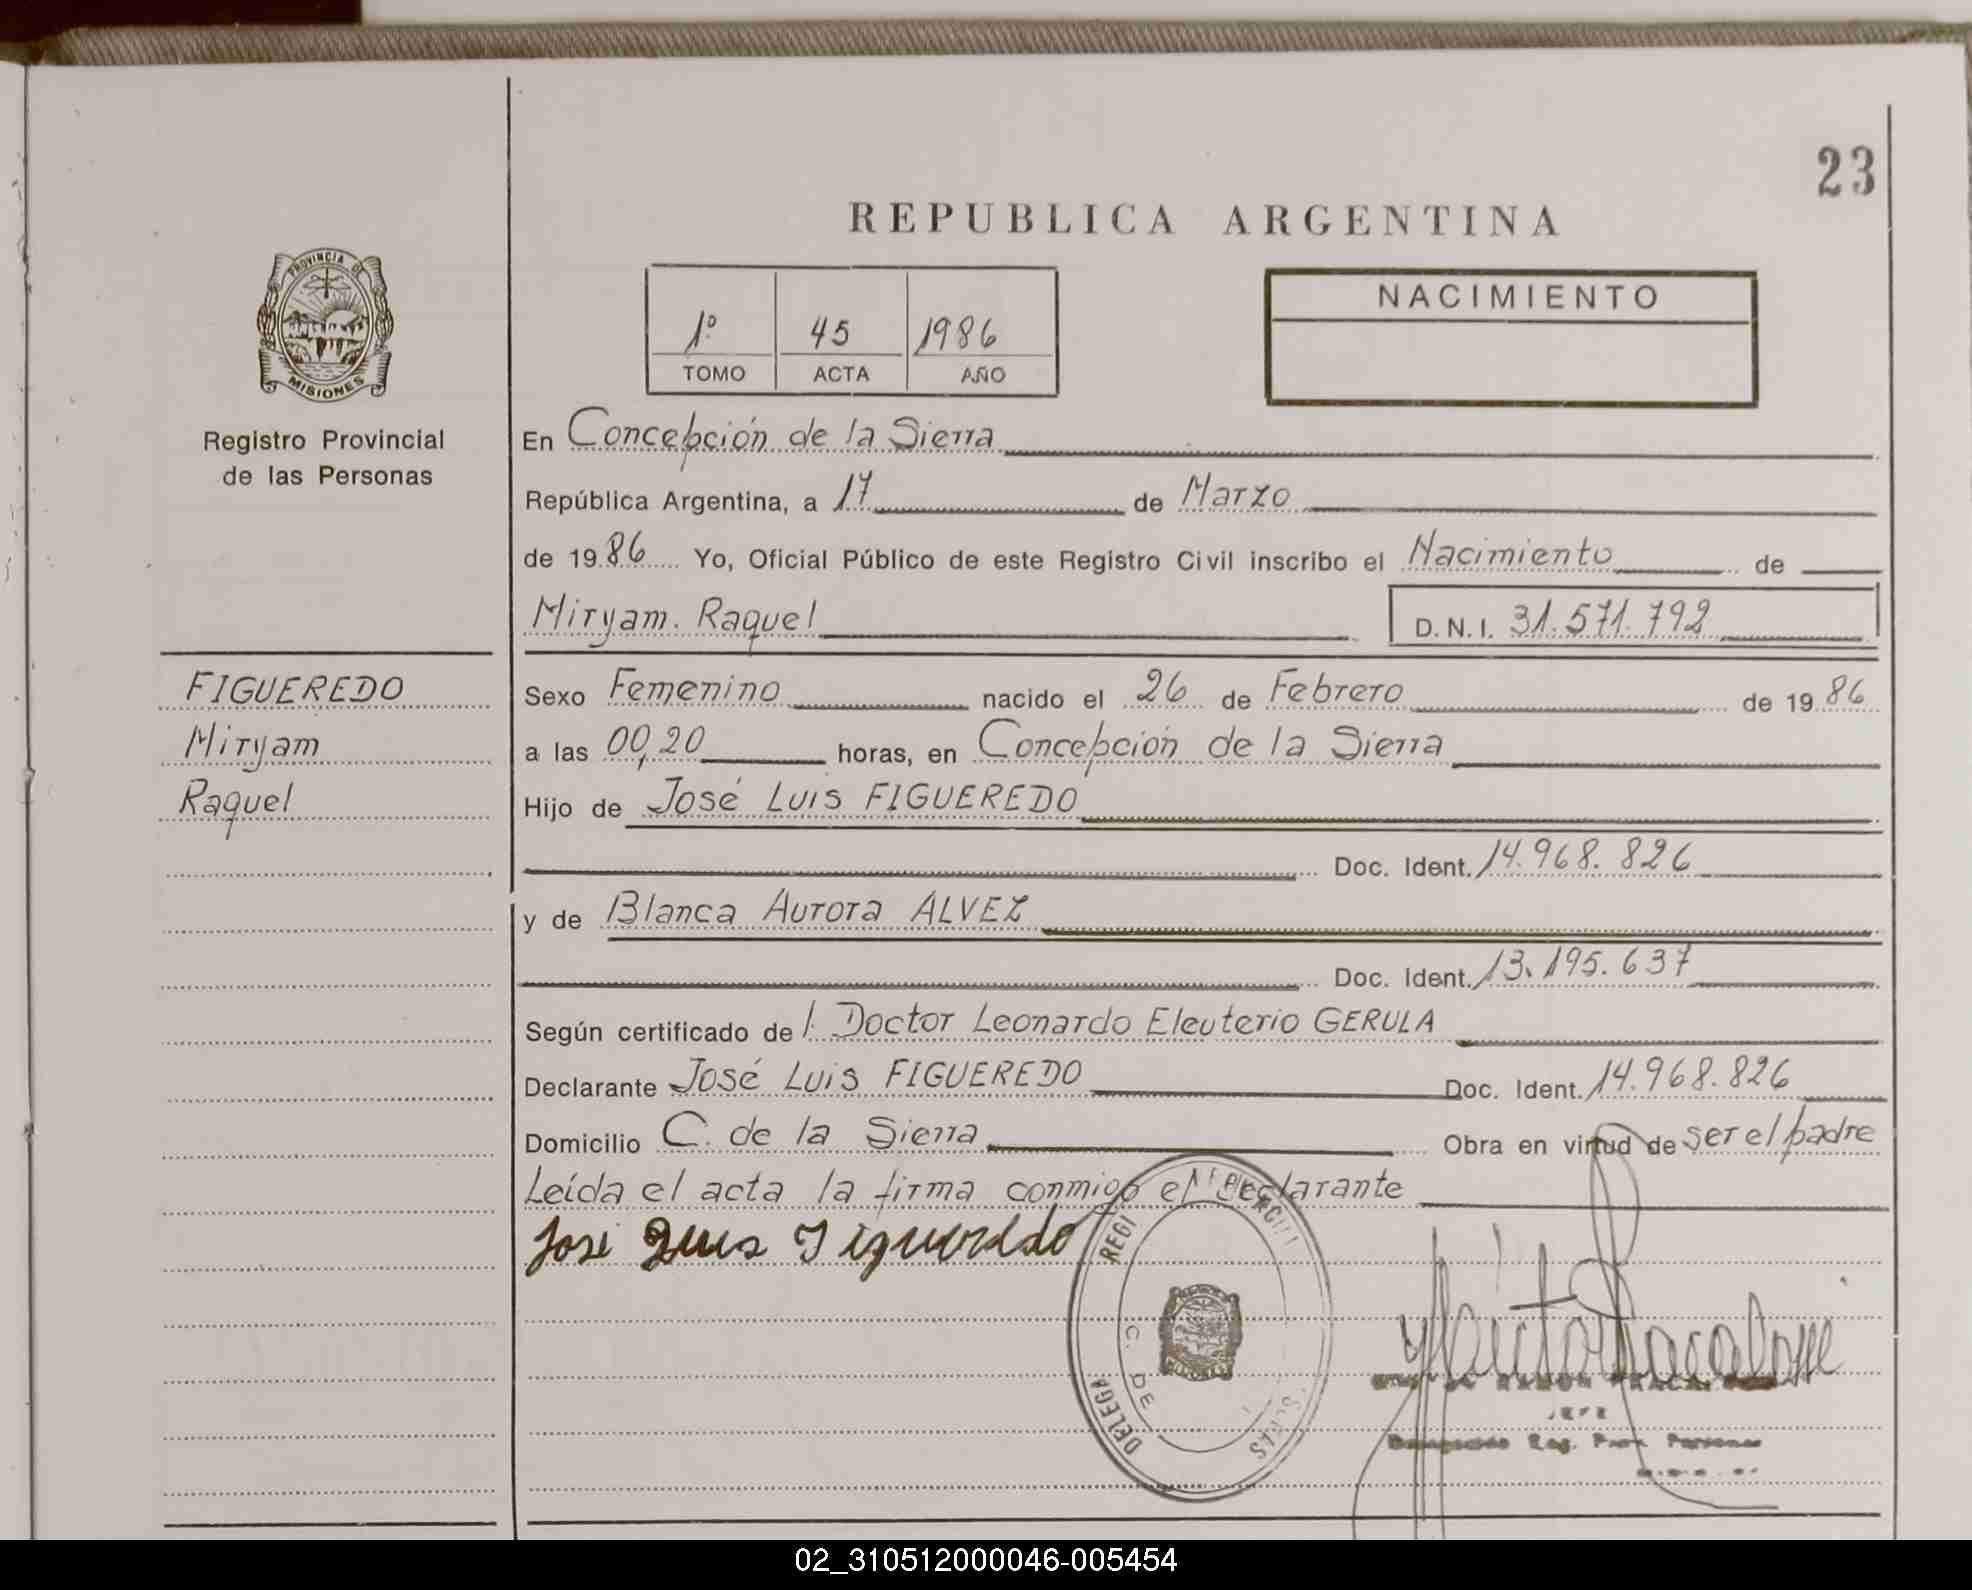 23
REPUBLICA ARGENTINA
PROVINCIA DE
MISIONES
1º 45 1986
TOMO ACTA AÑO
NACIMIENTO
Registro Provincial
de las Personas
En Concepción de la Sierra
República Argentina, a 17 de Marzo
de 1986 Yo, Oficial Público de este Registro Civil inscribo el Nacimiento de
Miryam Raquel D.N.I. 31.571.792
FIGUEREDO
Miryam
Raquel
Sexo Femenino nacido el 26 de Febrero de 1986
a las 00,20 horas, en Concepción de la Sierra
Hijo de José Luis FIGUEREDO
Doc. Ident. 14.968.826
y de Blanca Aurora ALVEZ
Doc. Ident. 13.195.637
Según certificado del Doctor Leonardo Eleuterio GERULA
Declarante José Luis FIGUEREDO Doc. Ident. 14.968.826
Domicilio C. de la Sierra Obra en virtud de ser el padre
Leída el acta la firma conmigo el declarante
José Luis Figueredo
REGI
C. DE
DELEGA
MISIONES
RAMON
JEFE
Reg. Prov. Personas
02_310512000046-005454